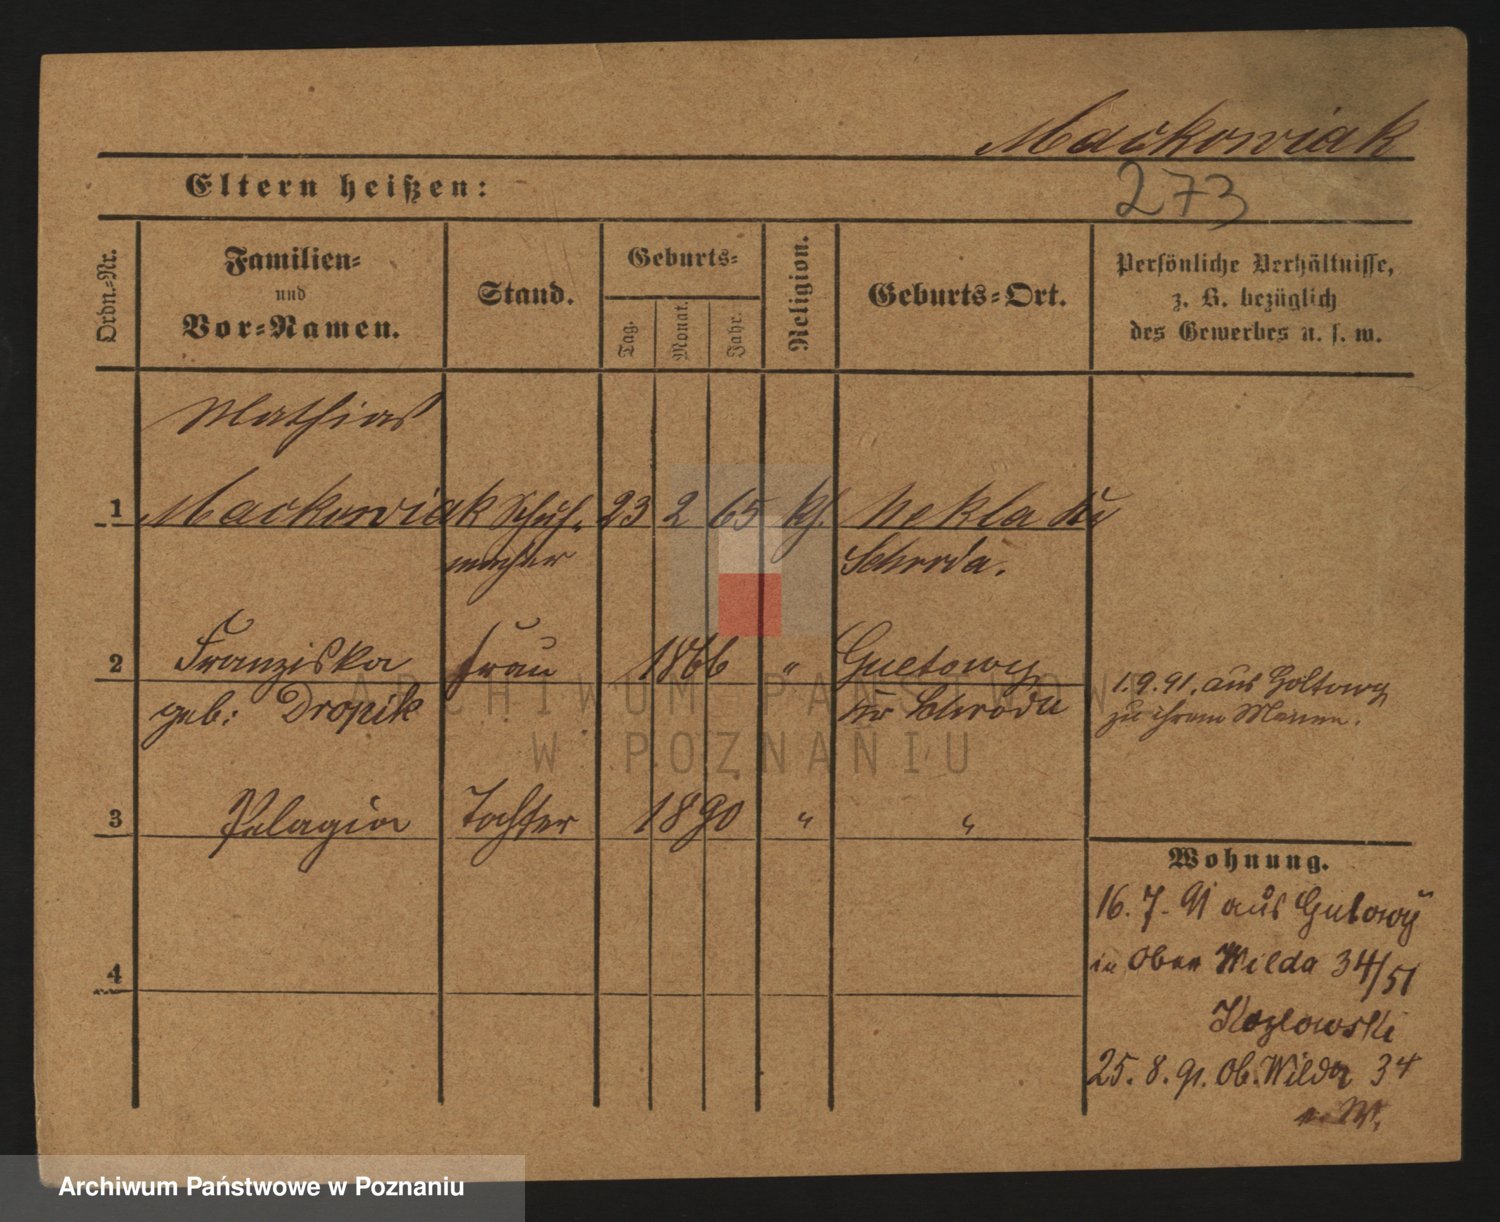 Mackowiak
Eltern heißen:
273
Ordn.-Nr.
Familien-
und
Vor-Namen.
Stand.
Geburts-
Tag.
Monat.
Jahr.
Religion.
Geburts-Ort.
Persönliche Verhältnisse,
z. B. bezüglich
des Gewerbes u. s. w.
Mathias
1 Mackowiak Schuh- 23 2 65 kth. Nekla Kr
macher Schroda.
2 Franziska Frau 1866 " Guetowy
geb: Dropik Kr Schroda
1.9.91. aus Goltowy
zu ihrem Manne.
3 Pelagia Tochter 1890 " "
Wohnung.
16. 7. 91 aus Gutowÿ
in Ober Wilda 34/51
Kozlowski
4
25. 8. 91. Ob. Wilda 34
ARCHIWUM PAŃSTWOWE
W POZNANIU
Archiwum Państwowe w Poznaniu